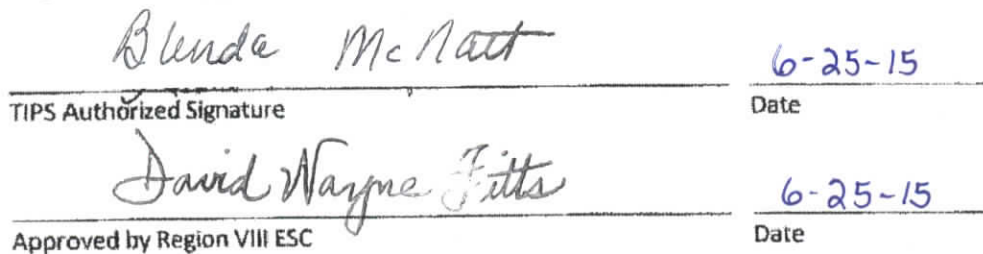 Brenda McNatt 6-25-15
TIPS Authorized Signature Date
David Wayne Fitts 6-25-15
Approved by Region VIII ESC Date